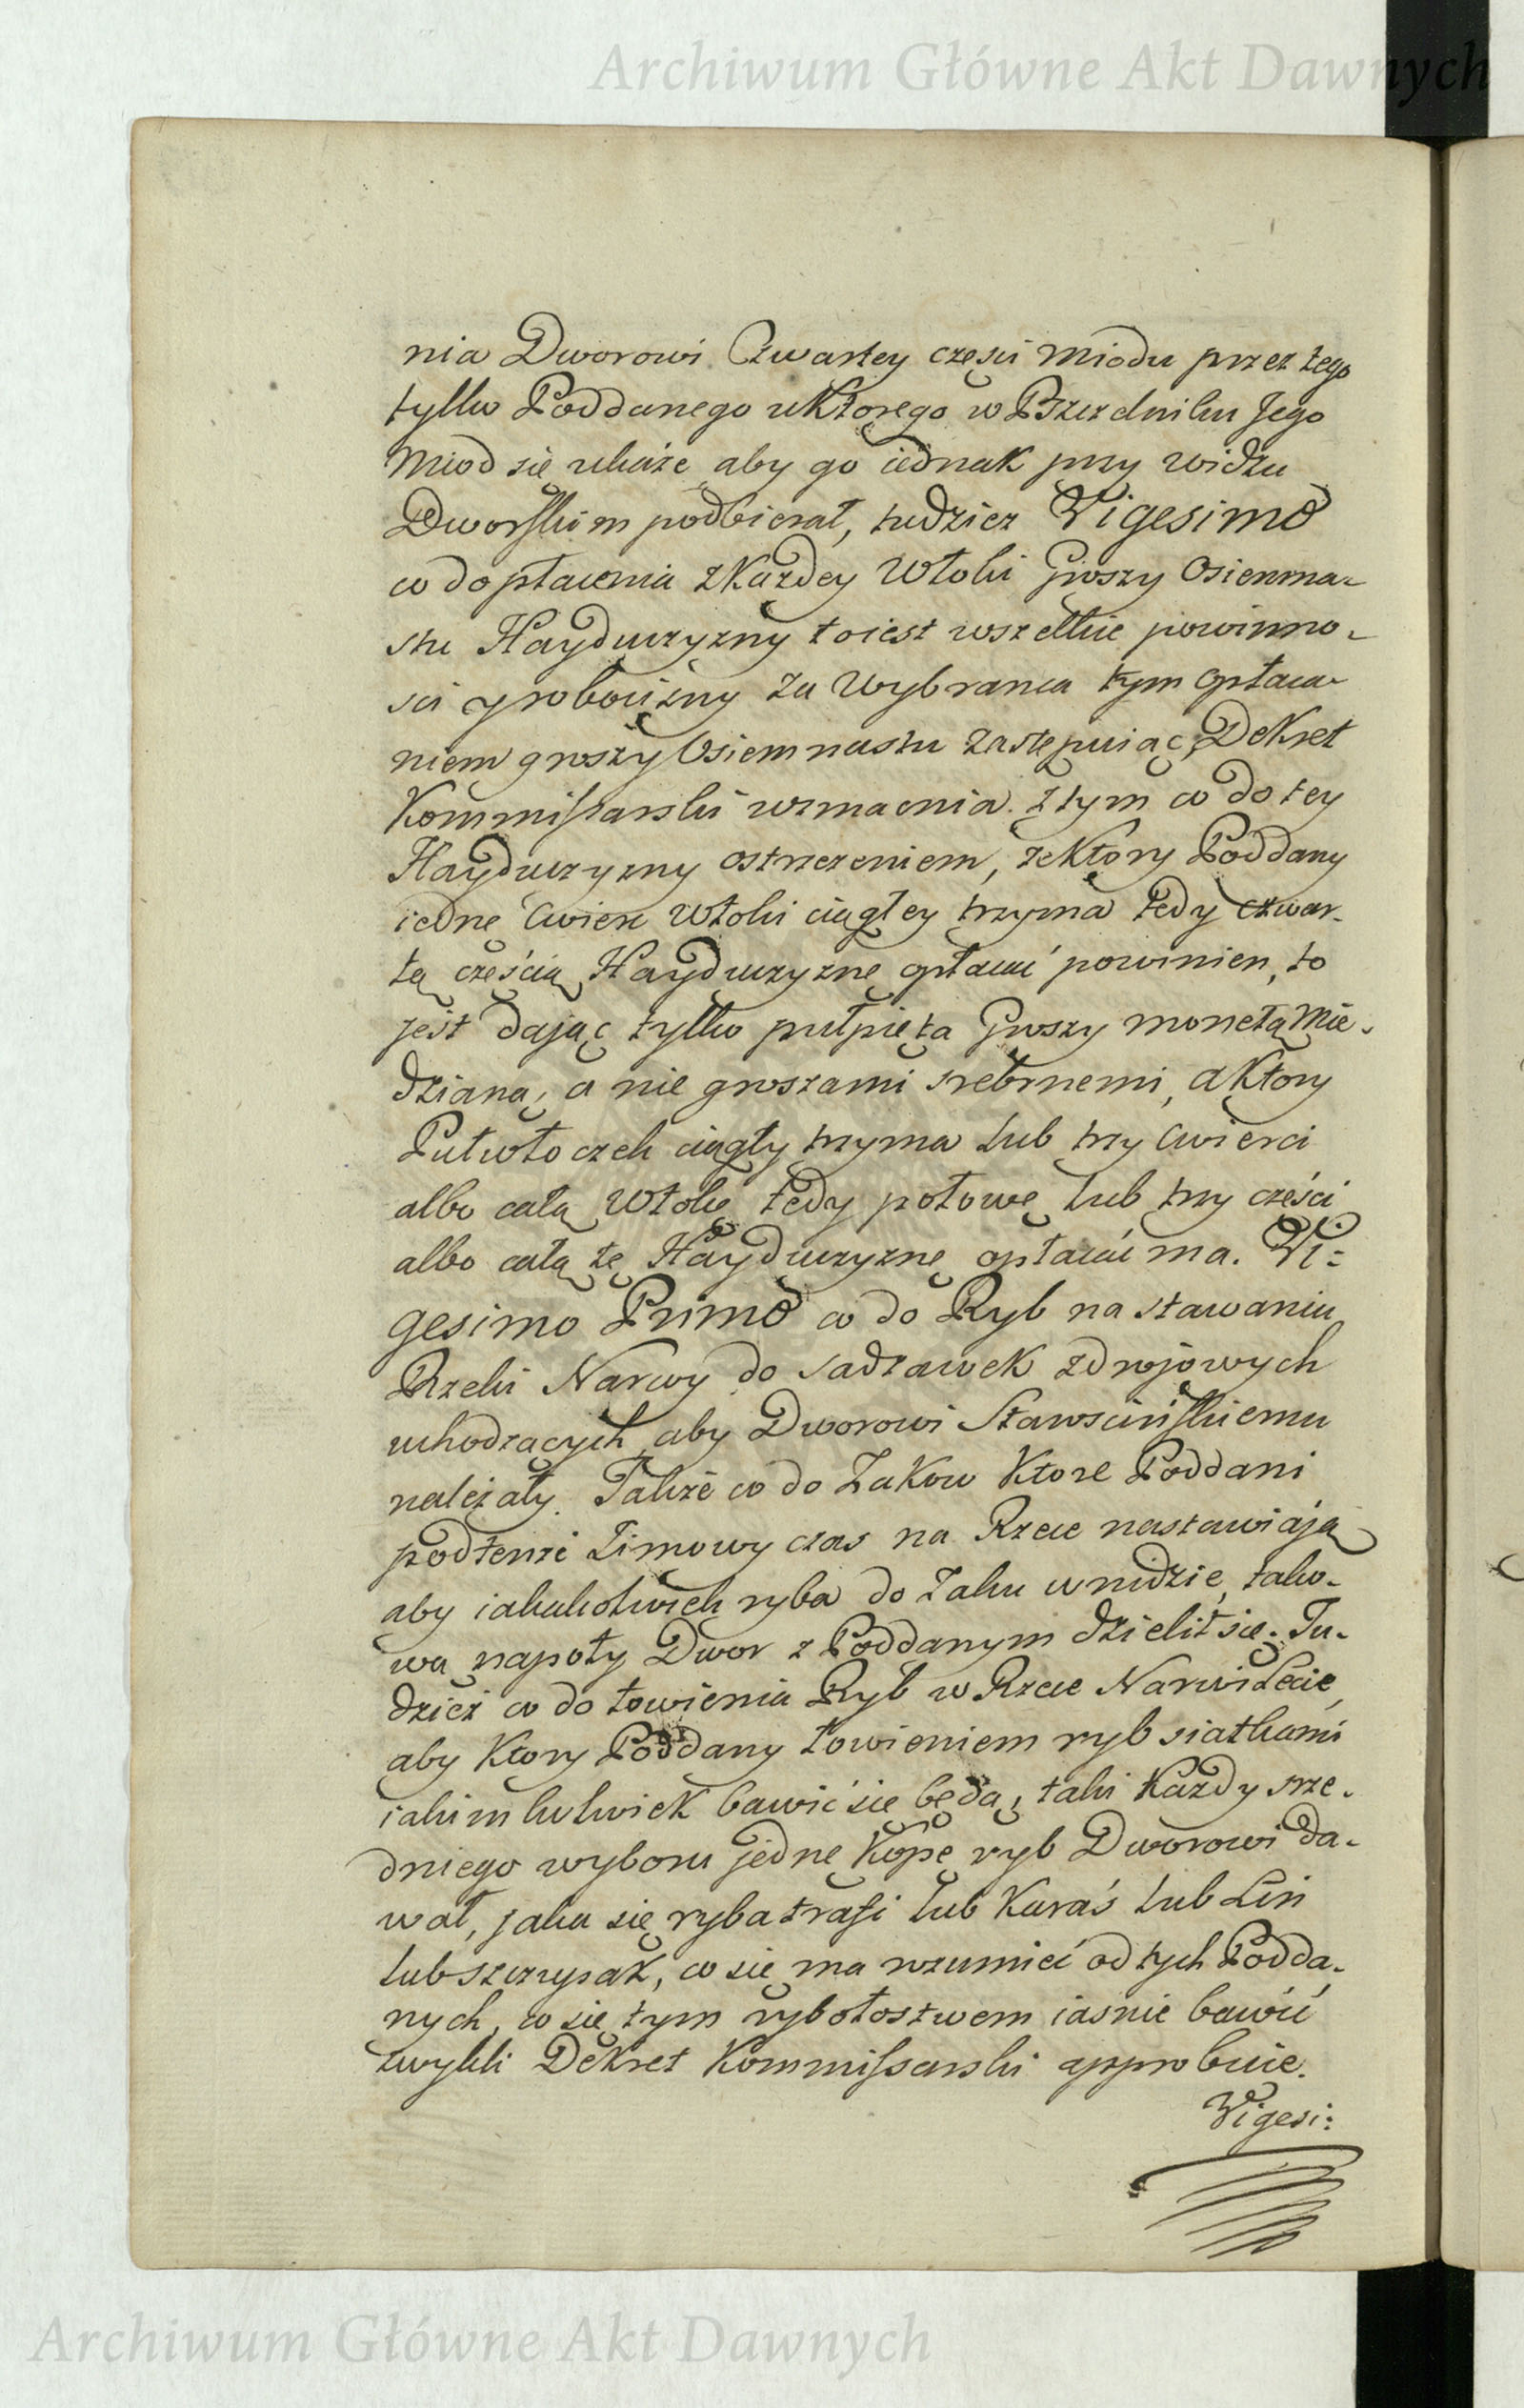 Archiwum Główne Akt Dawnych
nia Dworowi Czwartey częsci Miodu przez tego
tylko Poddanego uktorego w Przezdniku Jego
Miod się ukaże aby go iednak przy widzu
Dworskim podbierał, tudzież Vigesimo
co do płacenia z Każdey Włoki Groszy Osiemna-
stu Hayduczyzny to iest wszelkie powinno-
sci y robocizny za Wybranca tym opłaca-
niem groszy Osiemnastu zastępuiąc, Dekret
Kommissarski wzmacnia. z tym co do tey
Hayduczyzny ostrzezeniem, ze Ktory Poddany
iednę Cwierc Włoki ciągłey trzyma tedy czwar-
tą częścią Hayduczyznę opłacać powinien, to
jest dając tylko pułpięta Groszy monetą Mie-
dzianą, a nie groszami srebrnemi, a Ktory
Pułwłoczek ciągły trzyma lub trzy Cwierci
albo całą Włokę tedy połowę lub trzy części
albo całą tę Hayduczyznę opłacać ma. Vi=
gesimo Primo co do Ryb na stawaniu
Rzeki Narwy do sadzawek zdrojowych
uchodzących, aby Dworowi Starościńskiemu
należały. Także co do Żakow Ktore Poddani
podtenże Zimowy czas na Rzece nastawiają
aby iakakolwiek ryba do Żaku wnidzie, tako-
wą napoły Dwor z Poddanym dzielił się. Tu-
dzież co do łowienia Ryb w Rzece Narwi Lecie,
aby Ktory Poddany łowieniem ryb siatkami
iakimkolwiek bawić się będą, taki Każdy srze-
dniego wyboru jednę Kopę ryb Dworowi da-
wał, jaka się ryba trafi lub Karaś lub Lin
lub szczupak, co się ma rozumieć od tych Podda-
nych, co się tym rybołostwem iasnie bawić
zwykli Dekret Kommissarski approbuie.
Vigesi:
Archiwum Główne Akt Dawnych